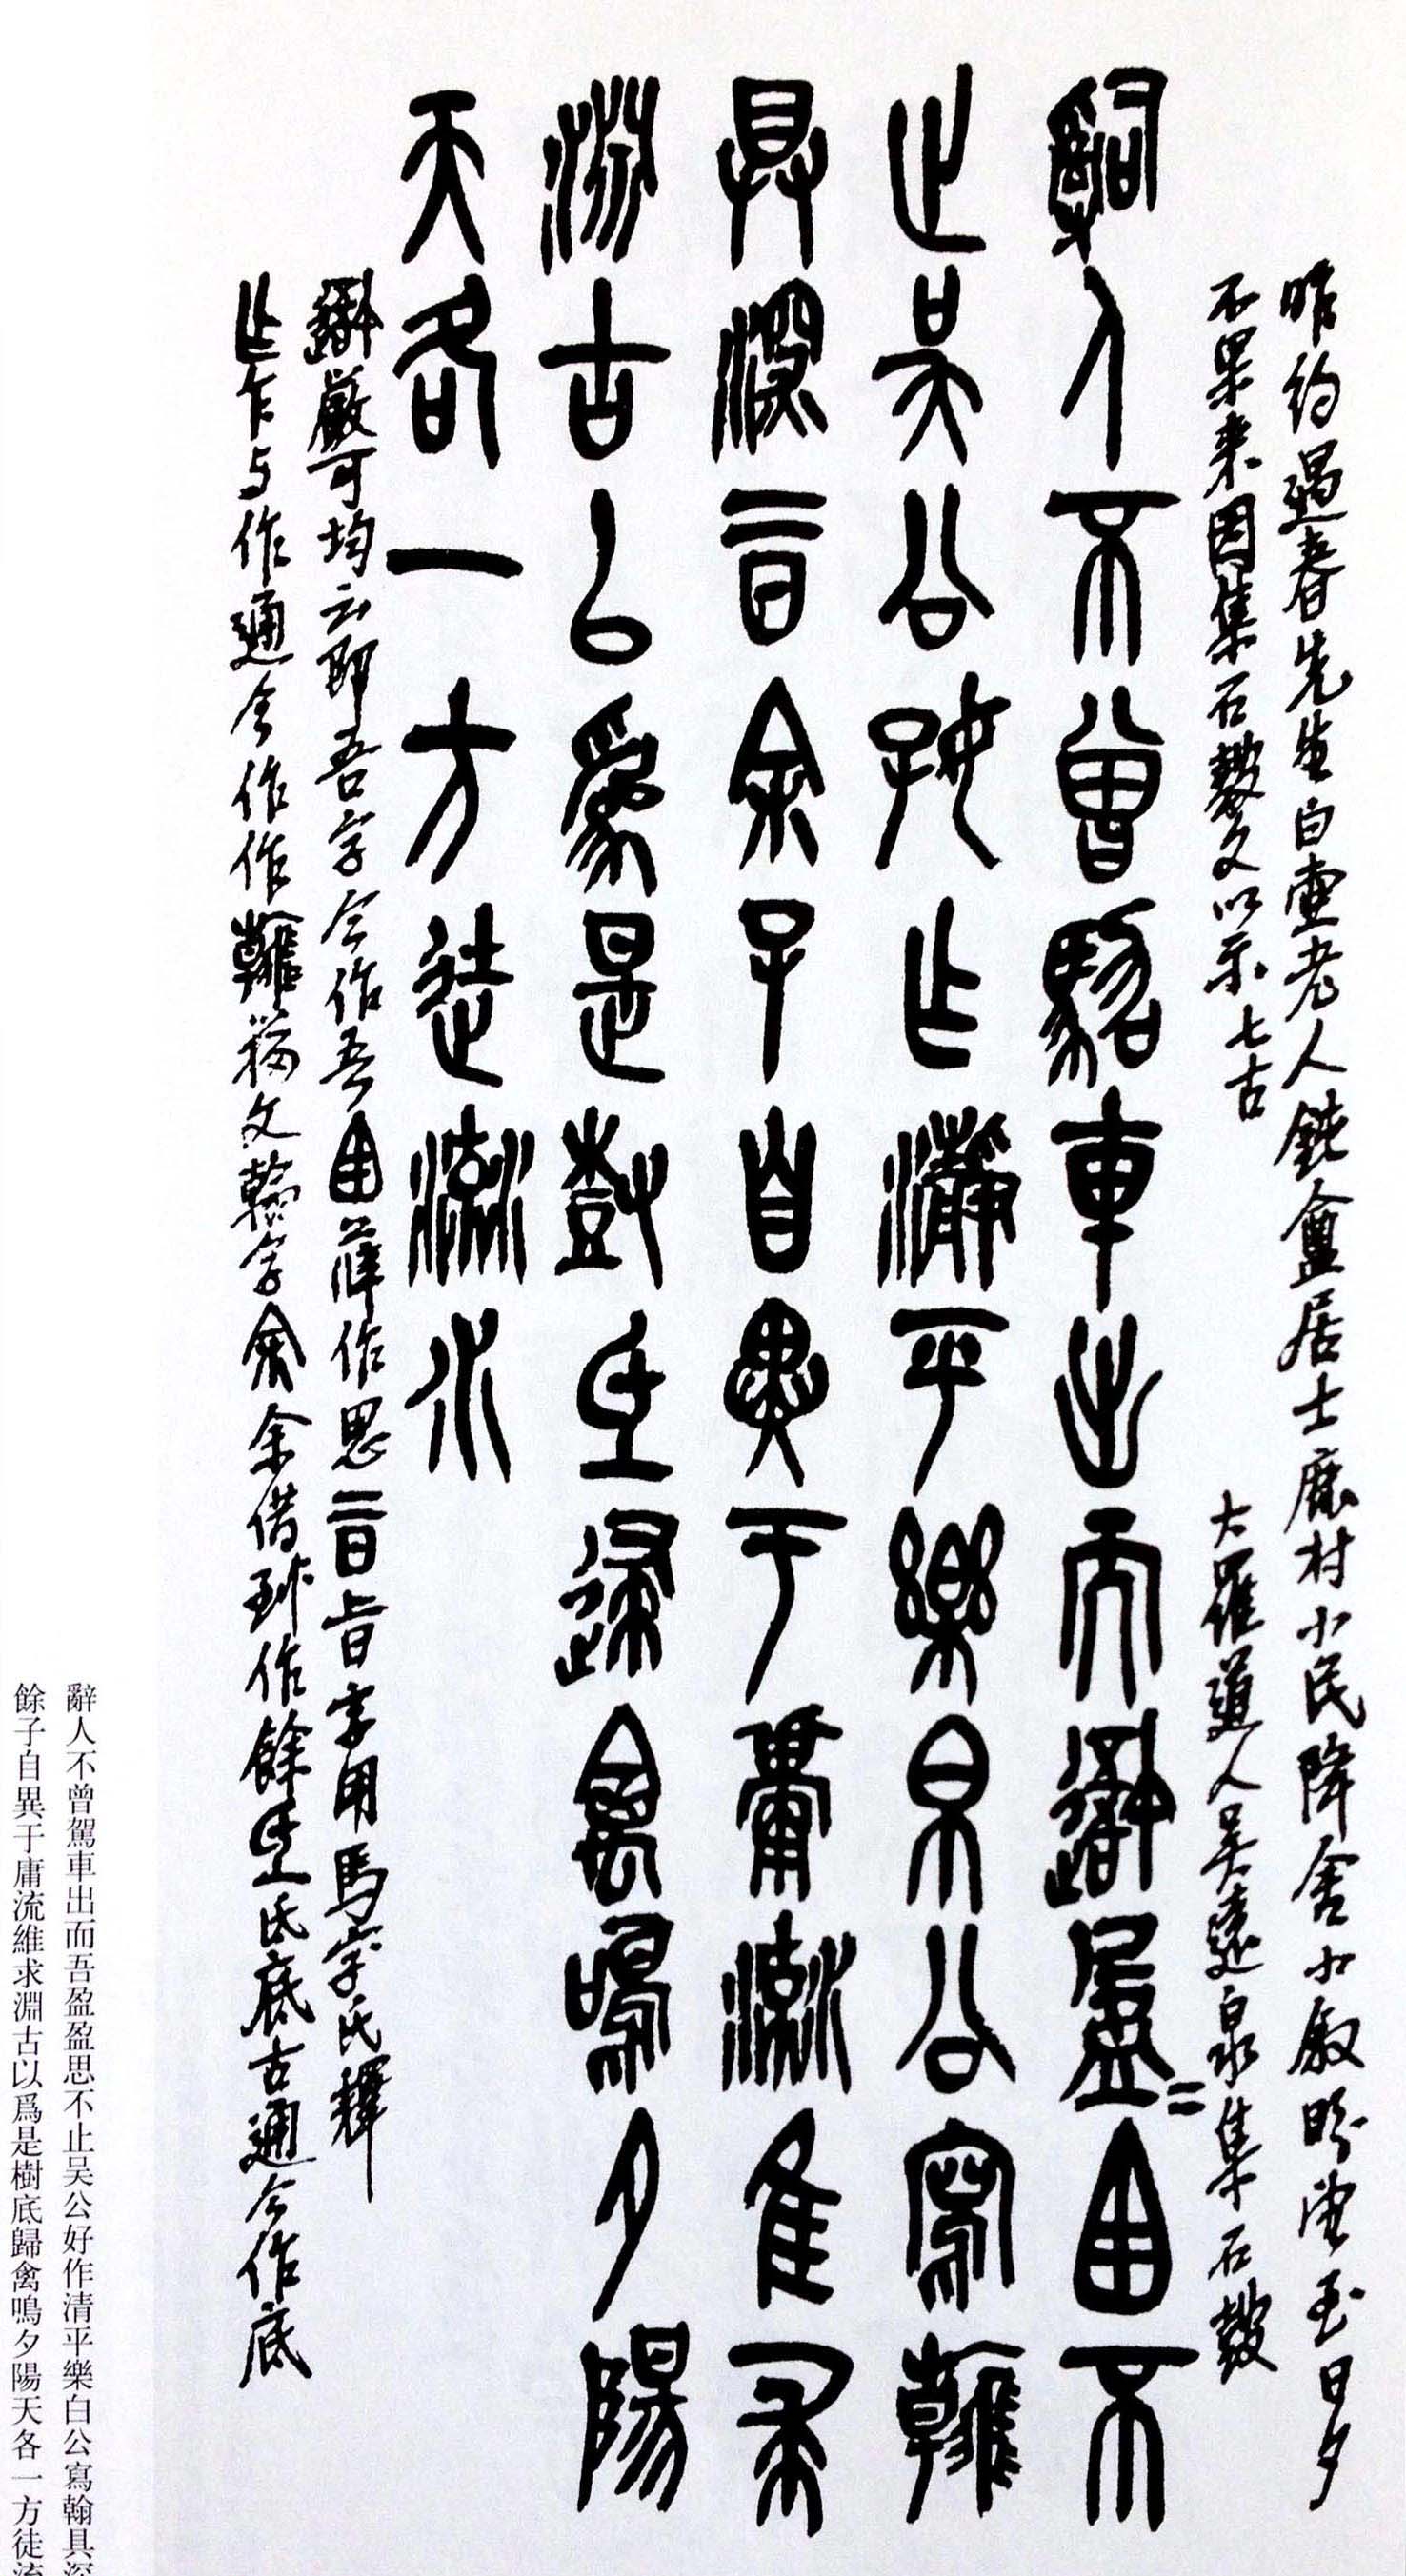 昨约過春先生白老人鈍盦居士鹿村小民降舍小敘盼望至日夕
不果来因集石鼓文以示七古
大羅道人吴遠泉集石鼓
辭人不曾駕車出而吾盈=思不
止吴公好乍清平樂白公寫翰
具深旨余子自異于庸流隹求
淵古以爲是樹氐歸禽鳴夕陽
天各一方徒流水
嚴可均云即吾字今作吾囟薛作思旨旨字用馬宗氏釋
乍乍与作通今作作翰籀文翰字余余借作餘氐氐底古通今作底
辭人不曾駕車出而吾盈盈思不止吴公好作清平樂白公寫翰具深
餘子自異于庸流維求淵古以爲是樹底歸禽鳴夕陽天各一方徒流